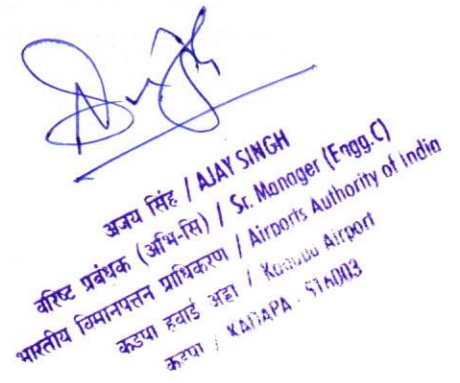 अजय सिंह / AJAY SINGH
वरिष्ट प्रबंधक (अभि-सि) / Sr. Manager (Engg.C)
भारतीय विमानपत्तन प्राधिकरण / Airports Authority of India
कडपा हवाई अड्डा / Airport
कडपा / KADAPA - 516003